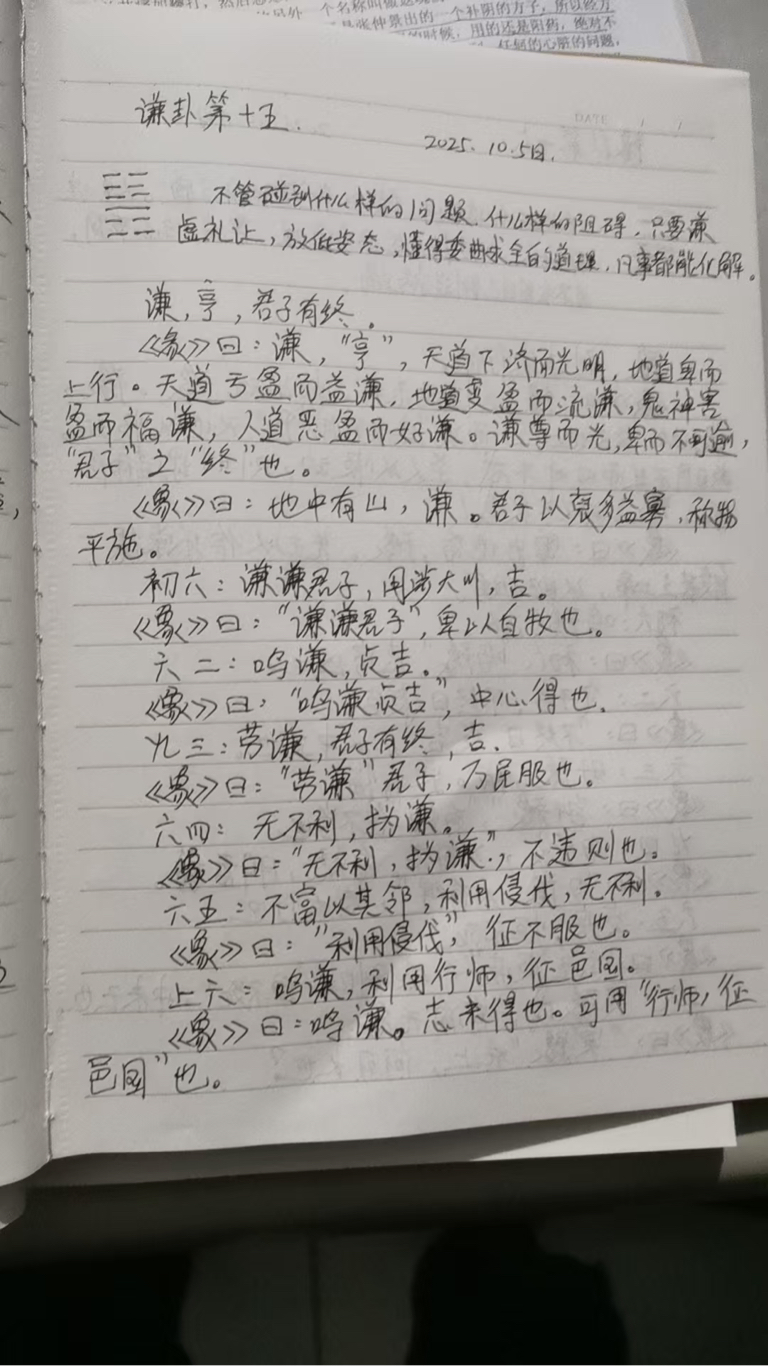 个名称叫做
张仲景出的一个补阴的方子，所以经方
的时候，用的还是阳药，绝对不
任何的心脏的问题，
DATE / /
谦卦第十五.
2025. 10.5日.
不管碰到什么样的问题.什么样的阻碍，只要谦
虚礼让，放低姿态，懂得委曲求全的道理，凡事都能化解。
谦，亨，君子有终。
《彖》曰：谦，“亨”，天道下济而光明，地道卑而
上行。天道亏盈而益谦，地道变盈而流谦，鬼神害
盈而福谦，人道恶盈而好谦。谦尊而光，卑而不可逾，
“君子”之“终”也。
《象》曰：地中有山，谦。君子以裒多益寡，称物
平施。
初六：谦谦君子，用涉大川，吉。
《象》曰：“谦谦君子”，卑以自牧也。
六二：鸣谦，贞吉。
《象》曰：“鸣谦贞吉”，中心得也.
九三：劳谦，君子有终，吉.
《象》曰：“劳谦”君子，万民服也。
六四：无不利，㧑谦。
《象》曰：“无不利，㧑谦”，不违则也。
六五：不富以其邻，利用侵伐，无不利.
《象》曰：“利用侵伐”，征不服也。
上六：鸣谦，利用行师，征邑国。
《象》曰：鸣谦。志未得也。可用“行师，征
邑国”也。